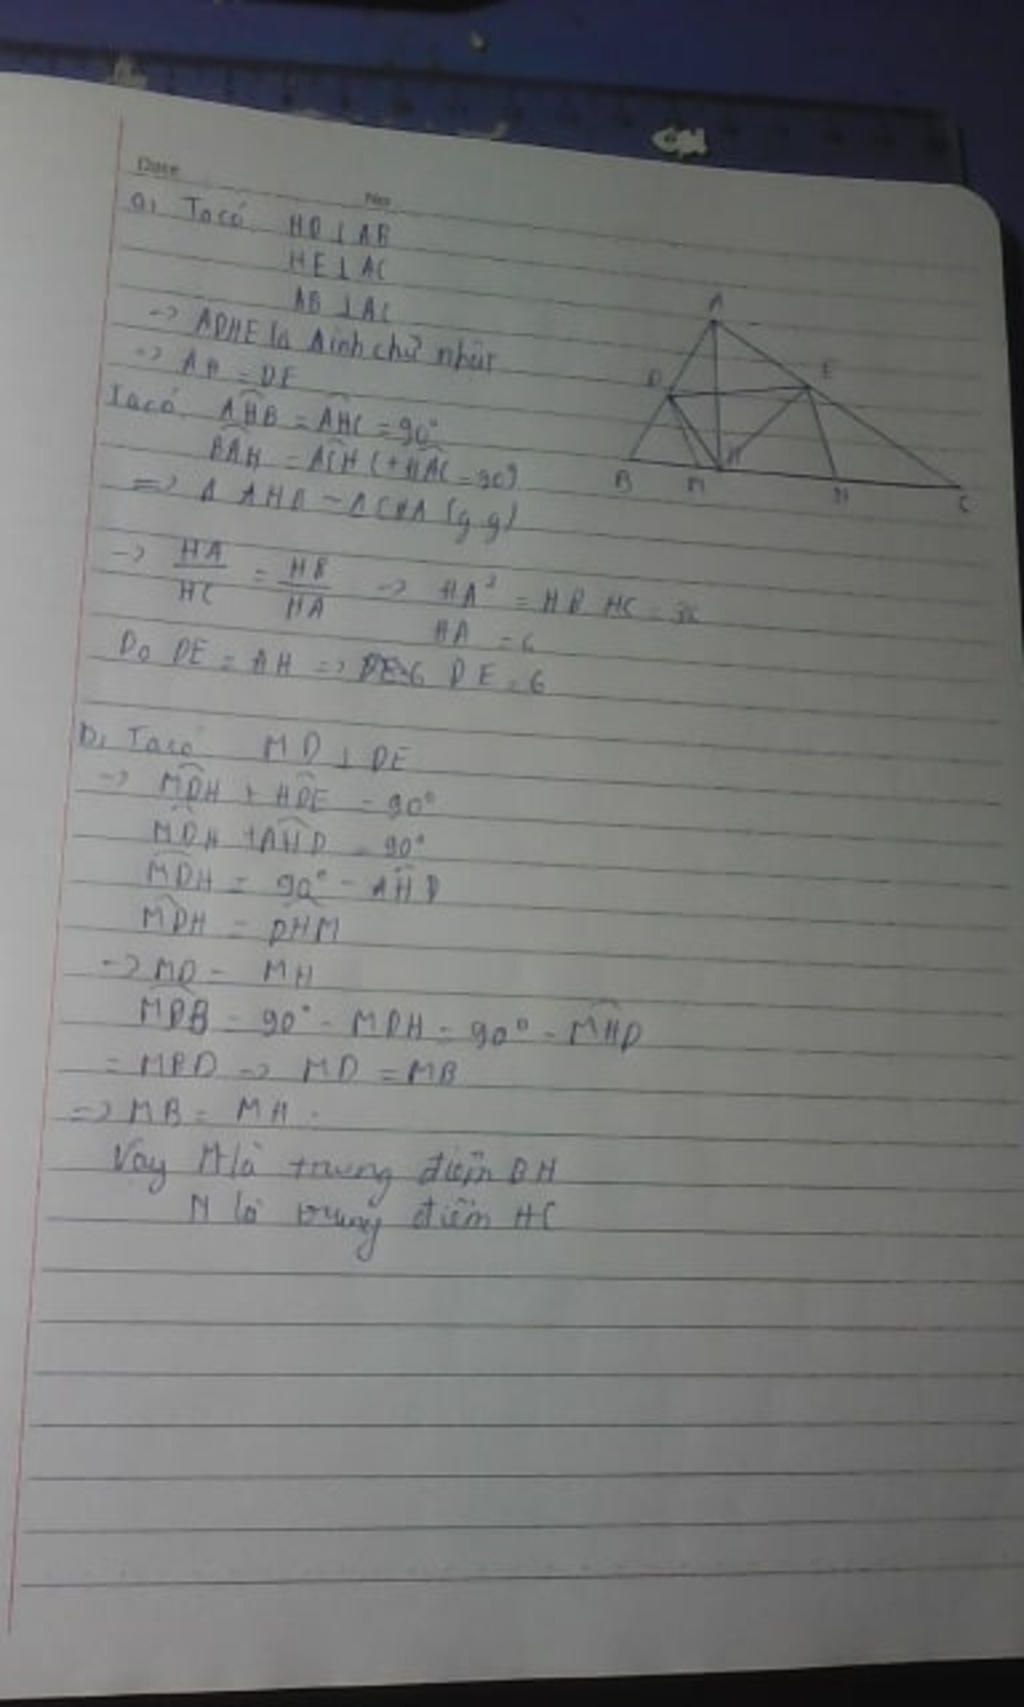 Date
No
a, Ta có HD ⊥ AB
HE ⊥ AC
AB ⊥ AC
-> ADHE là hình chữ nhật
=> AH = DE
Ta có AHB = AHC = 90°
BAH = ACH (+HAC = 90°)
=> Δ AHB ~ Δ CHA (g g)
-> HA/HC = HB/HA -> HA² = HB HC = 36
HA = 6
Do DE = AH => DE = 6
b, Ta có MD ⊥ DE
-> MDH + HDE = 90°
MDH + AHD = 90°
MDH = 90° - AHD
MDH = DHM
-> MD = MH
MDB = 90° - MDH = 90° - MHD
= MBD -> MD = MB
=> MB = MH.
Vậy M là trung điểm BH
N là trung điểm HC
A
D
E
B
M
H
N
C